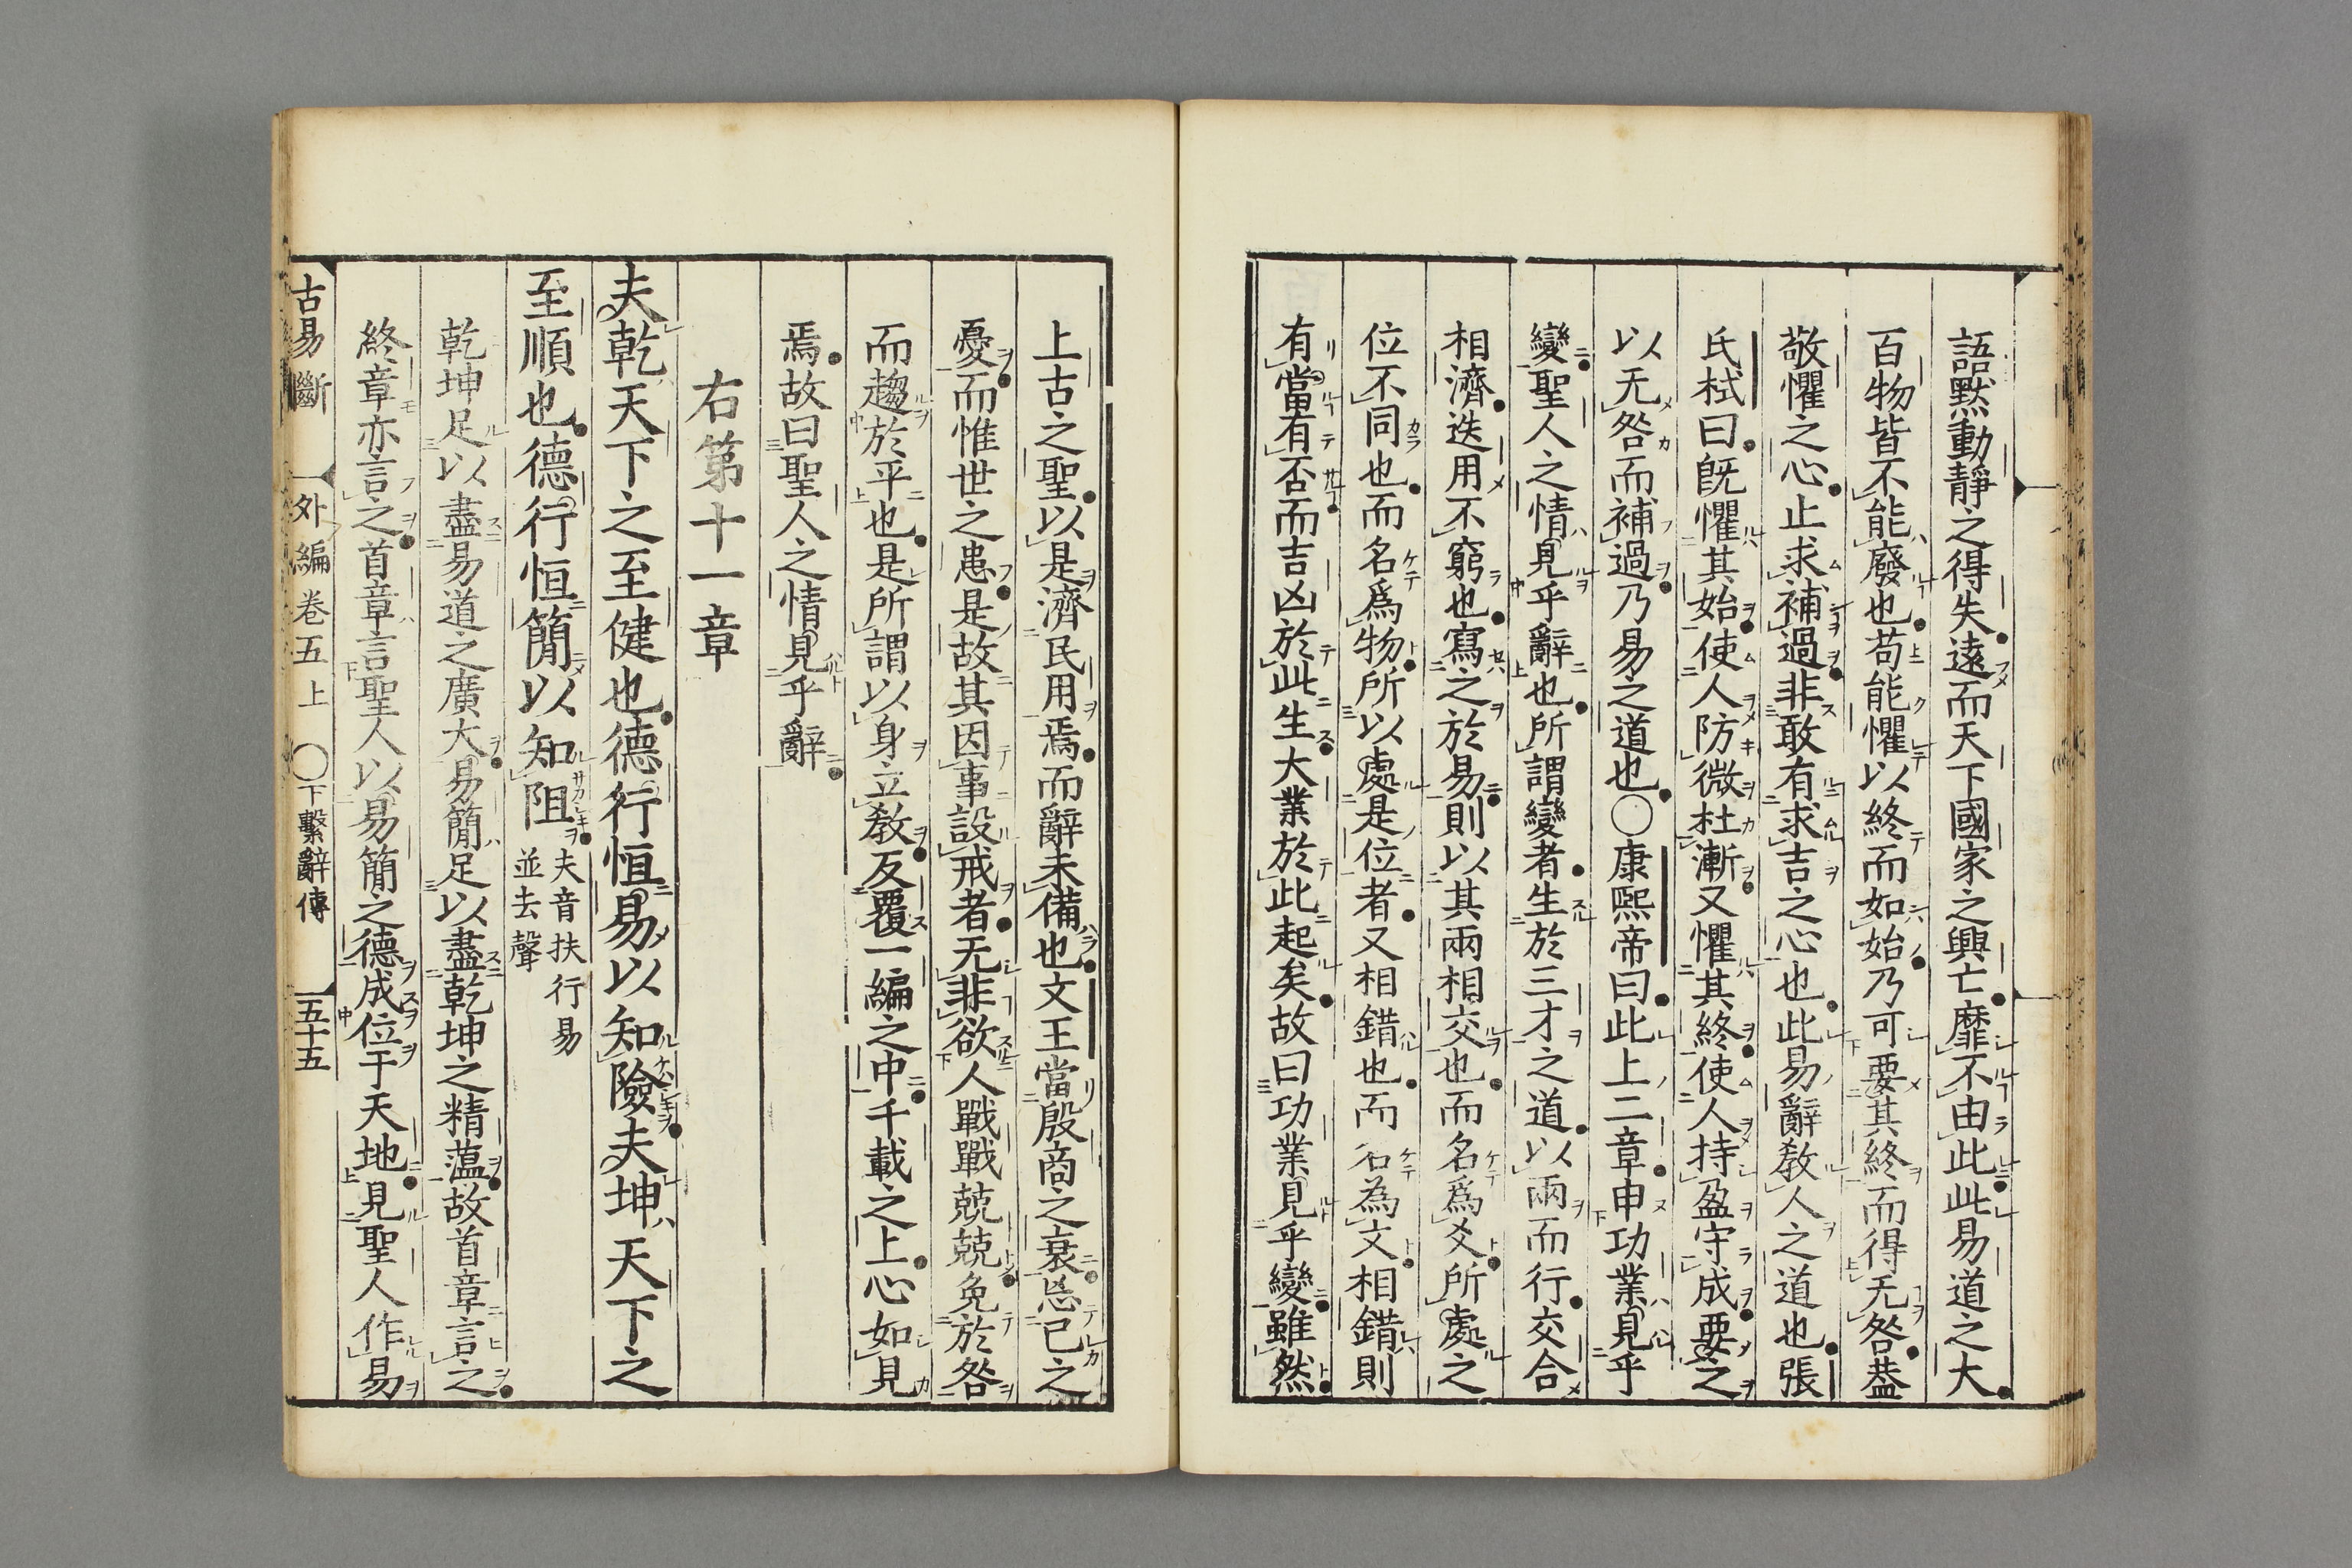 語黙動靜之得失遠而天下國家之興亡靡不由此此易道之大
百物皆不能廢也苟能懼以終而如始乃可要其終而得无咎葢
敬懼之心止求補過非敢有求吉之心也此易辭教人之道也張
氏栻曰旣懼其始使人防微杜漸又懼其終使人持盈守成要之
以无咎而補過乃易之道也〇康熙帝曰此上二章申功業見乎
變聖人之情見乎辭也所謂變者生於三才之道以兩而行交合
相濟迭用不窮也寫之於易則以其兩相交也而名爲爻所處之
位不同也而名爲物所以處是位者又相錯也而名為文相錯則
有當有否而吉凶於此生大業於此起矣故曰功業見乎變雖然
上古之聖以是濟民用焉而辭未備也文王當殷商之衰忘己之
憂而惟世之患是故其因事設戒者无非欲人戰戰兢兢免於咎
而趨於平也是所謂以身立教反覆一編之中千載之上心如見
焉故曰聖人之情見乎辭
右第十一章
夫乾天下之至健也德行恒易以知險夫坤天下之
至順也德行恒簡以知阻
夫音扶行易
並去聲
乾坤足以盡易道之廣大易簡足以盡乾坤之精蘊故首章言之
終章亦言之首章言聖人以易簡之德成位于天地見聖人作易
古易斷 外編卷五上 〇下繫辭傳 五十五